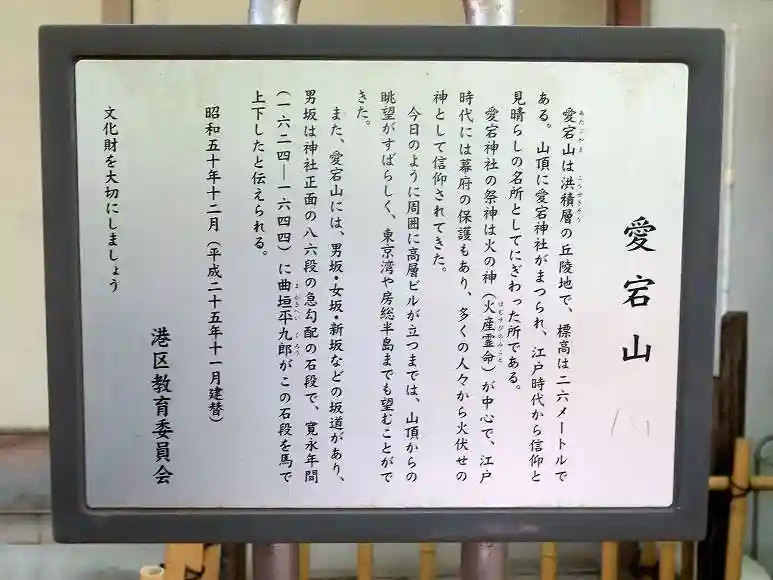 愛宕山
愛宕山は洪積層の丘陵地で、標高は二六メートルで
あたごやま
こうせきそう
ある。山頂に愛宕神社がまつられ、江戸時代から信仰と
見晴らしの名所としてにぎわった所である。
愛宕神社の祭神は火の神（火産霊命）が中心で、江戸
ほむすびのみこと
時代には幕府の保護もあり、多くの人々から火伏せの
神として信仰されてきた。
今日のように周囲に高層ビルが立つまでは、山頂からの
眺望がすばらしく、東京湾や房総半島までも望むことがで
きた。
また、愛宕山には、男坂・女坂・新坂などの坂道があり、
男坂は神社正面の八六段の急勾配の石段で、寛永年間
（一六二四―一六四四）に曲垣平九郎がこの石段を馬で
まがきへいくろう
上下したと伝えられる。
昭和五十年十二月（平成二十五年十一月建替）
港区教育委員会
文化財を大切にしましょう